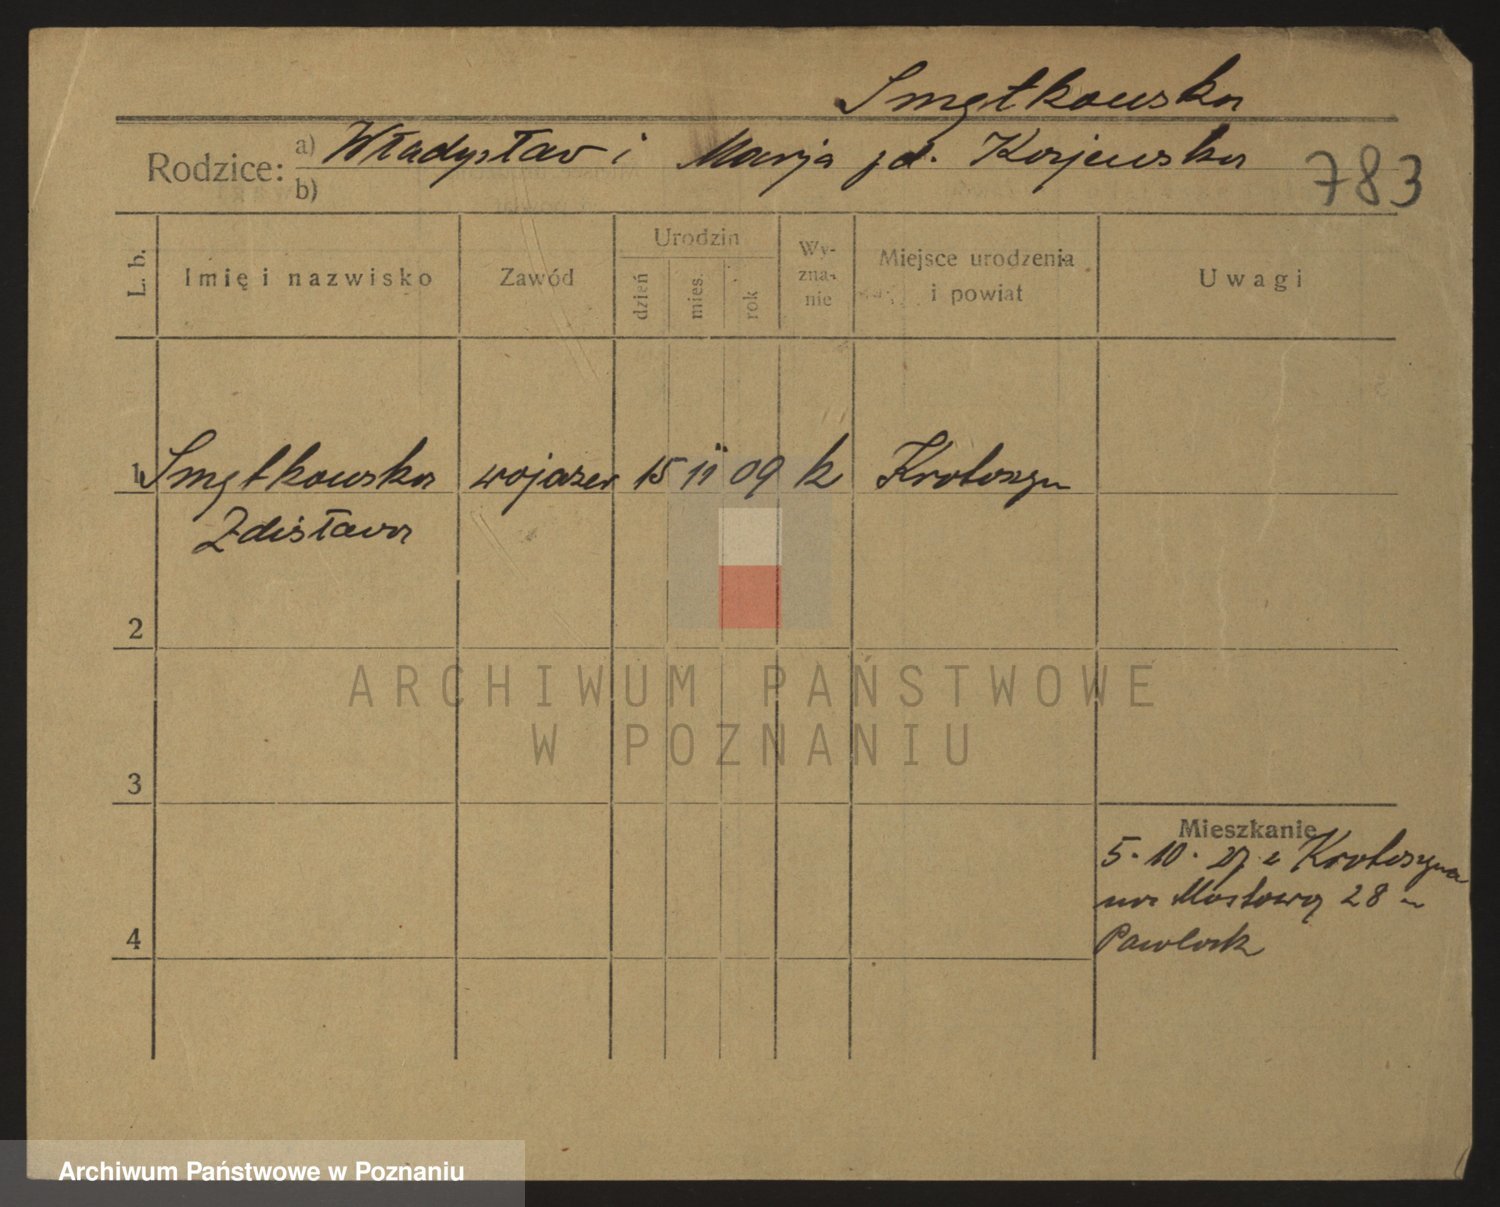 Smętkowska
Rodzice: a) Władysław i Marja
b)
783
L. b.
Imię i nazwisko
Zawód
Urodzin
dzień
mies.
rok
Wy-
zna-
nie
Miejsce urodzenia
i powiat
Uwagi
1 Smętkowska wojażer 15 11 09 k Krotoszyn
Zdisława
2
3
4
Mieszkanie
5. 10. 27 z Krotoszyna
na Mostową 28
ARCHIWUM PAŃSTWOWE
W POZNANIU
Archiwum Państwowe w Poznaniu